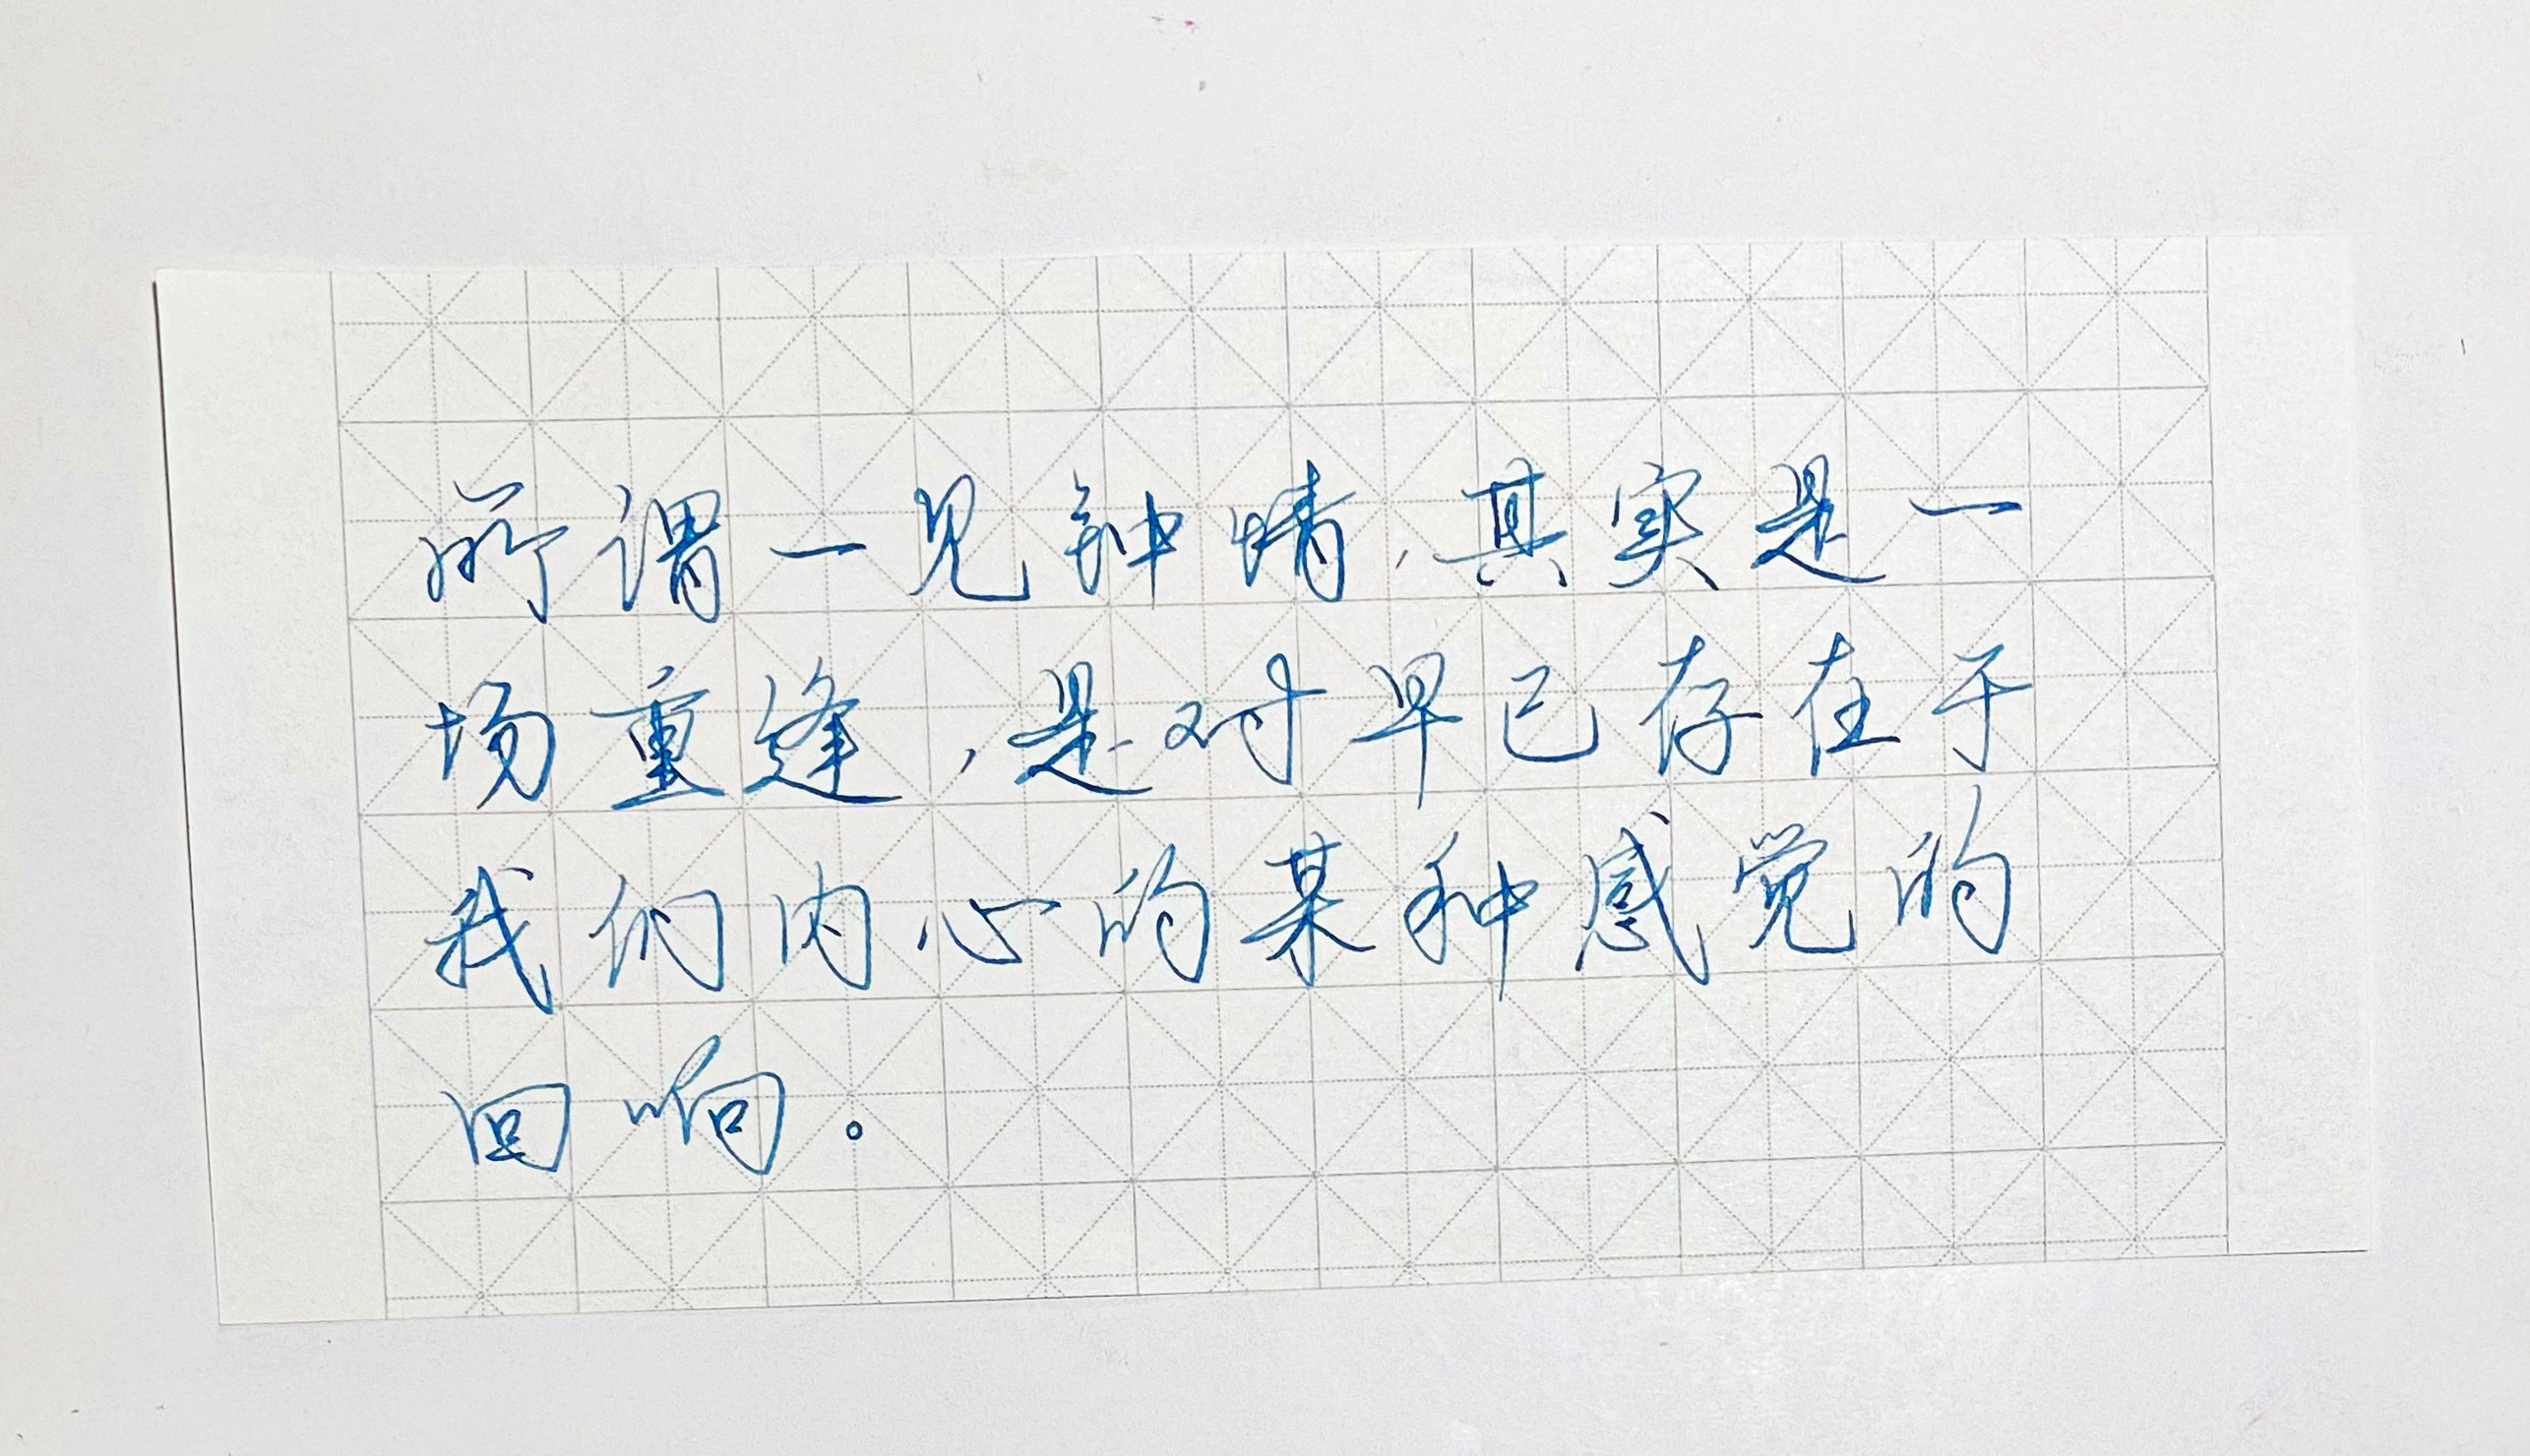 所谓一见钟情,其实是一
场重逢,是对早已存在于
我们内心的某种感觉的
回响。